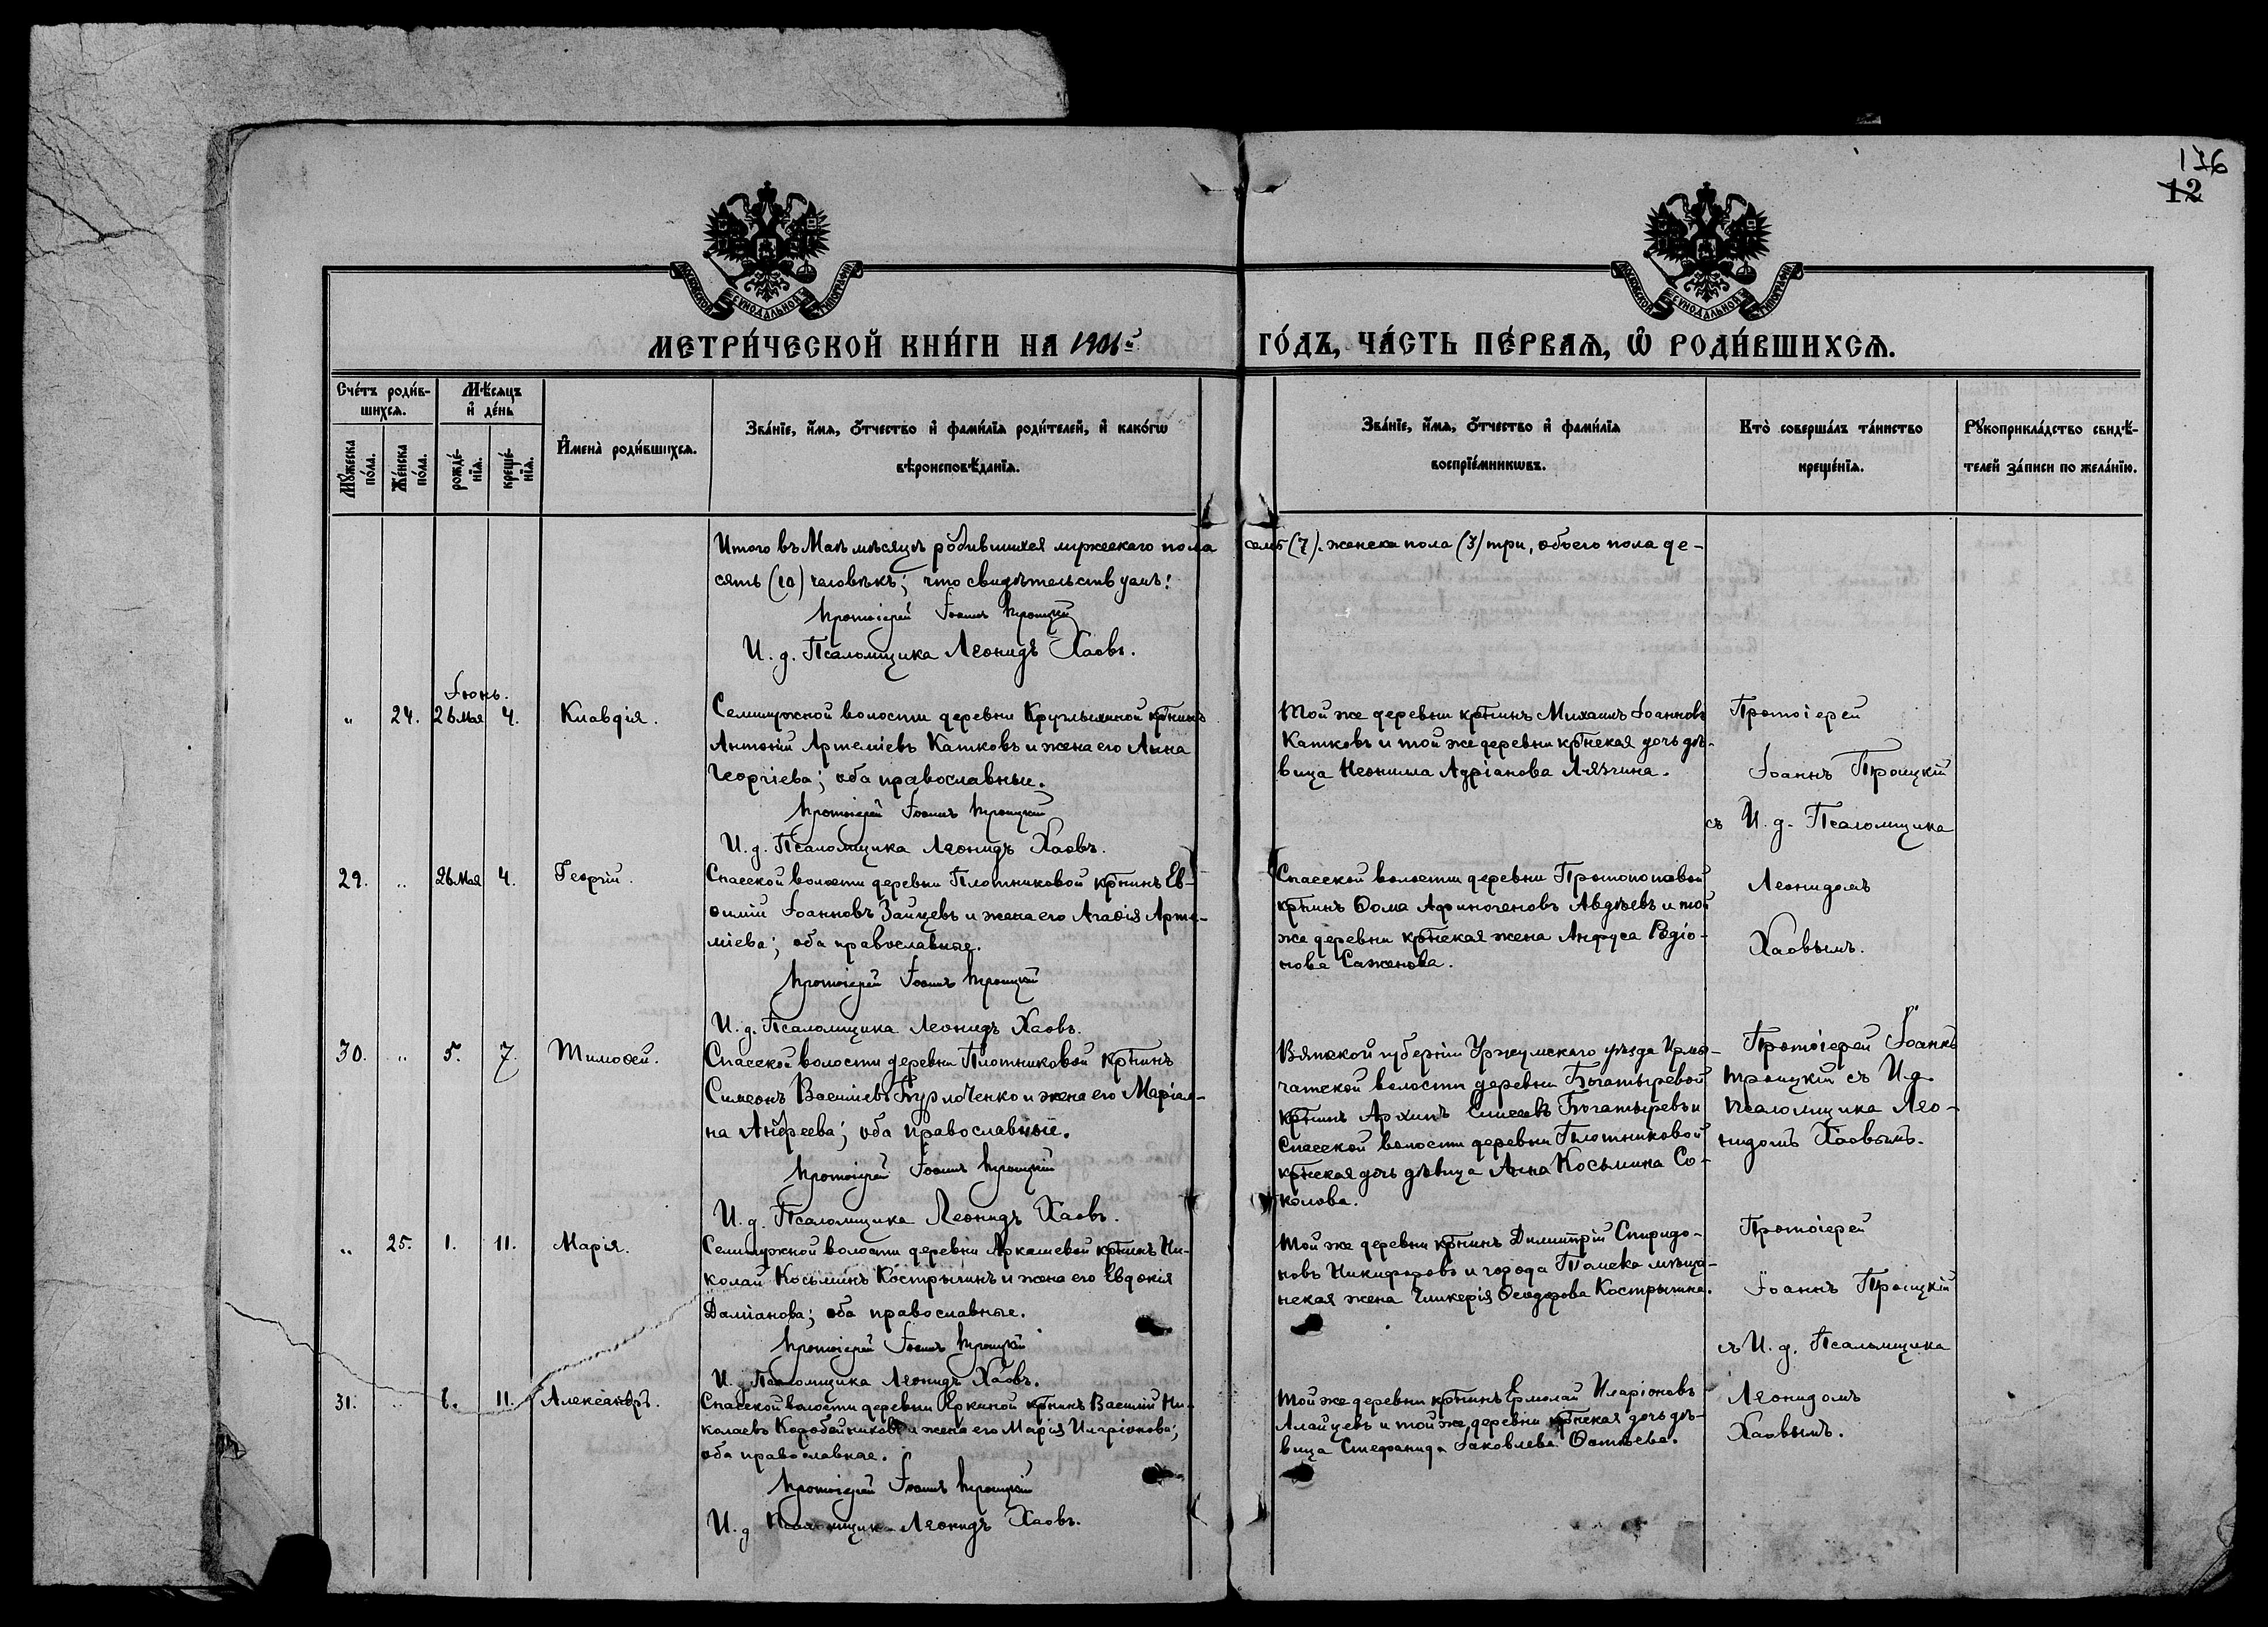 176
12
МОСКОВСКОЙ СѴНОДАЛЬНОЙ ТИПОГРАФІИ
МОСКОВСКОЙ СѴНОДАЛЬНОЙ ТИПОГРАФІИ
МЕТРИ́ЧЕСКОЙ КНИ́ГИ НА 1901й ГО́ДЪ, ЧА́СТЬ ПЕ́РВАѦ, Ѡ҆ РОДИ́ВШИХСѦ.
Сче́тъ роди́в-
шихсѧ.
Мѣ́сѧцъ
и҆ де́нь
Мꙋ́жеска
по́ла.
Же́нска
по́ла.
рожде́-
нїѧ.
креще́-
нїѧ.
И҆мена̀ роди́вшихсѧ.
Зва́нїе, и҆́мѧ, ѻ҆́тчество и҆ фами́лїѧ роди́телей, и҆ како́гѡ
вѣроисповѣ́данїѧ.
Зва́нїе, и҆́мѧ, ѻ҆́тчество и҆ фами́лїѧ
воспрїе́мникѡвъ.
Кто̀ соверша́лъ та́инство
креще́нїѧ.
Рꙋкоприкла́дство свидѣ́-
телей за́писи по жела́нїю.
Итого въ Маѣ мѣсяцѣ родившихся мужескаго пола семь (7). женска пола (3) три, обоего пола де-
сять (10) человѣкъ; что свидѣтельствуемъ:
Протоіерей Іоаннъ Троицкій
И. д. Псаломщика Леонидъ Хаовъ.
Іюнь.
" 24. 26 Мая 4. Клавдія.
Семилужной волости деревни Круглыхиной кр̃нинъ
Антоній Артеміевъ Катковъ и жена его Анна
Георгіева; оба православные.
Протоіерей Іоаннъ Троицкій
И. д. Псаломщика Леонидъ Хаовъ.
Той же деревни кр̃нинъ Михаилъ Іоанновъ
Катковъ и той же деревни кр̃нская дочь дѣ-
вица Неонилла Адріанова
Протоіерей
Іоаннъ Троицкій
съ И. д. Псаломщика
Леонидомъ
Хаовымъ.
29. " 26 Мая 4. Георгій.
Спасской волости деревни Плотниковой кр̃нинъ Ев-
ѳимій Іоанновъ Зайцевъ и жена его Агаѳія Арте-
міева; оба православные.
Протоіерей Іоаннъ Троицкій
И. д. Псаломщика Леонидъ Хаовъ.
Спасской волости деревни Протопоповой
кр̃нинъ Ѳома Афиногеновъ Авдѣевъ и той
же деревни кр̃нская жена Анфуса Родіо-
нова Саженова.
30. " 5. 7. Тимоѳей.
Спасской волости деревни Плотниковой кр̃нинъ
Симеонъ Васильевъ Бурлоченко и жена его Маріам-
на Андреева; оба православные.
Протоіерей Іоаннъ Троицкій
И. д. Псаломщика Леонидъ Хаовъ.
Вятской губерніи Уржумскаго уѣзда
чатской волости деревни Богатыревой
кр̃нинъ Архипъ Елисеевъ Богатыревъ и
Спасской волости деревни Плотниковой
кр̃нская дочь дѣвица Анна Косьмина Со-
колова.
Протоіерей Іоаннъ
Троицкій съ И. д.
Псаломщика Лео-
нидомъ Хаовымъ.
" 25. 1. 11. Марія.
Семилужной волости деревни Аркашевой кр̃нинъ Ни-
колай Косьминъ Кострыкинъ и жена его Евдокія
Даміанова; оба православные.
Протоіерей Іоаннъ Троицкій
И. д. Псаломщика Леонидъ Хаовъ.
Той же деревни кр̃нинъ Димитрій Спиридо-
новъ Никифоровъ и города Томска мѣща-
нская жена Гликерія Ѳеодорова Кострыкина.
Протоіерей
Іоаннъ Троицкій
съ И. д. Псаломщика
Леонидомъ
Хаовымъ.
31. " 6. 11. Александръ.
Спасской волости деревни Яркиной кр̃нинъ Василій Ни-
колаевъ Коробейниковъ и жена его Марія Иларіонова;
оба православные.
Протоіерей Іоаннъ Троицкій
И. д. Псаломщика Леонидъ Хаовъ.
Той же деревни кр̃нинъ Ермолай Иларіоновъ
и той же деревни кр̃нская дочь дѣ-
вица Стефанида Іаковлева